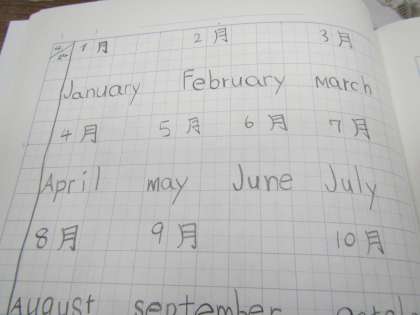 1月 2月 3月
January February march
4月 5月 6月 7月
April may June July
8月 9月 10月
August september